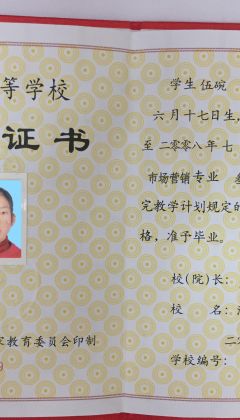 等学校
证书
家教育委员会印制
学生 伍碗
六月十七日生，
至二〇〇八年七
市场营销 专业
完教学计划规定的
格，准予毕业。
校（院）长：
校 名：
二
学校编号：